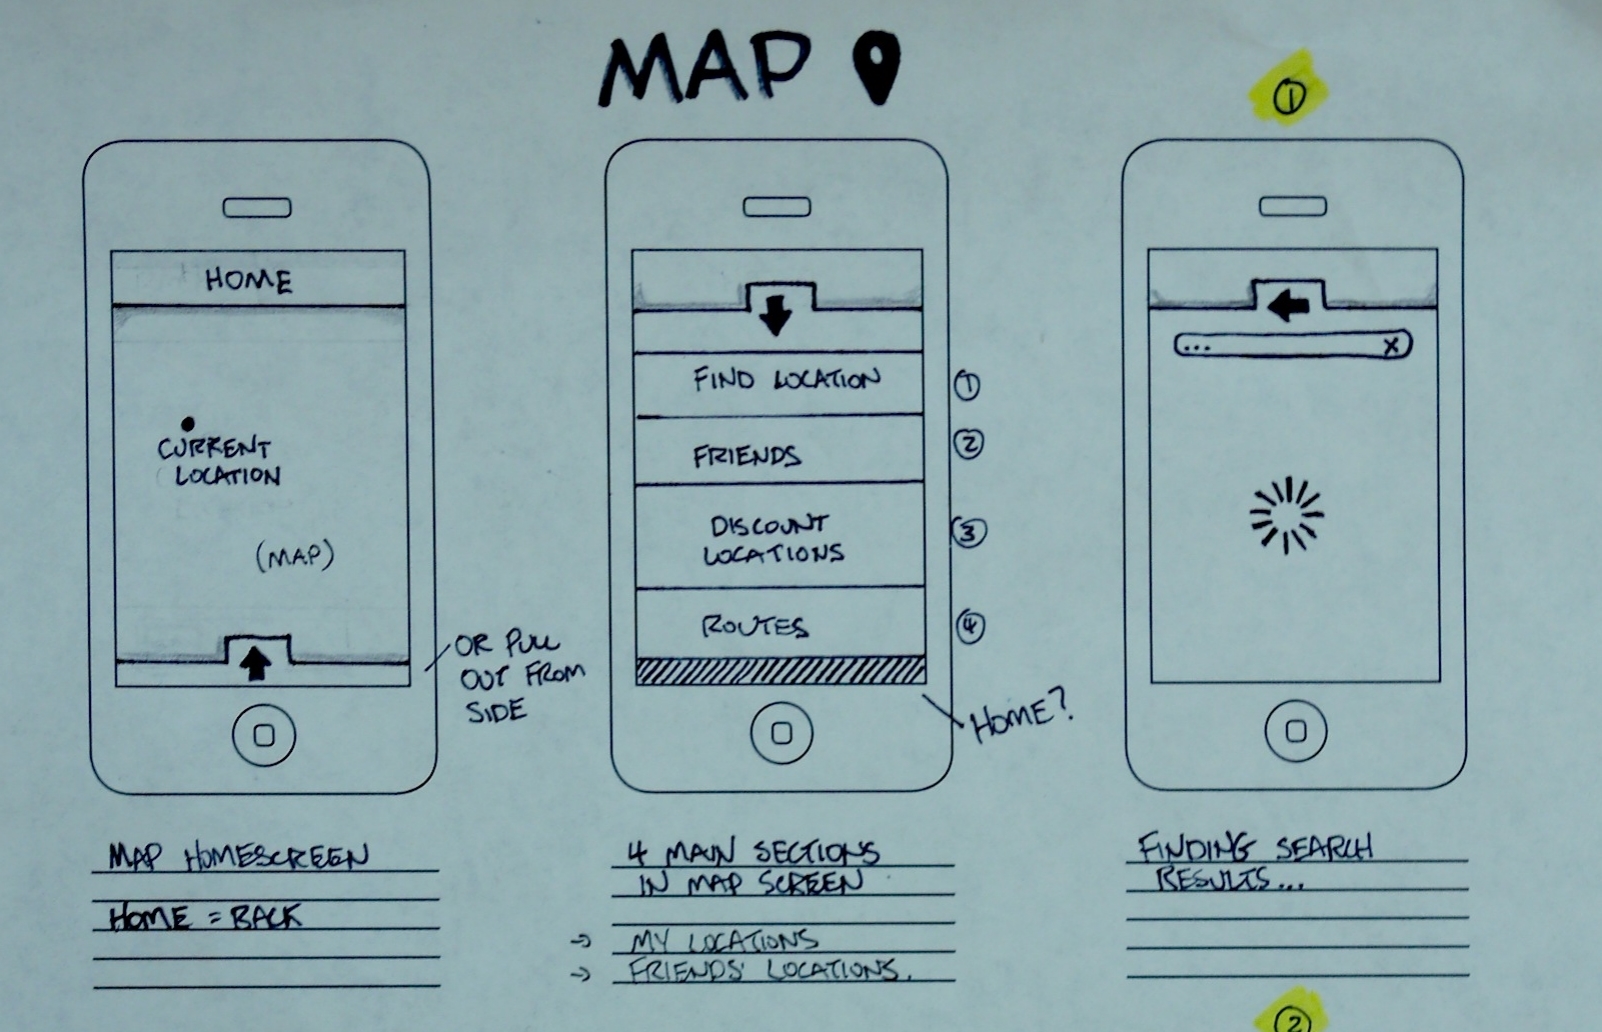 MAP
①
HOME
CURRENT
LOCATION
(MAP)
OR PULL
OUT FROM
SIDE
MAP HOMESCREEN
HOME = BACK
FIND LOCATION ①
FRIENDS ②
DISCOUNT
LOCATIONS ③
ROUTES ④
HOME?
4 MAIN SECTIONS
IN MAP SCREEN
→ MY LOCATIONS
→ FRIENDS' LOCATIONS.
... X
FINDING SEARCH
RESULTS...
②